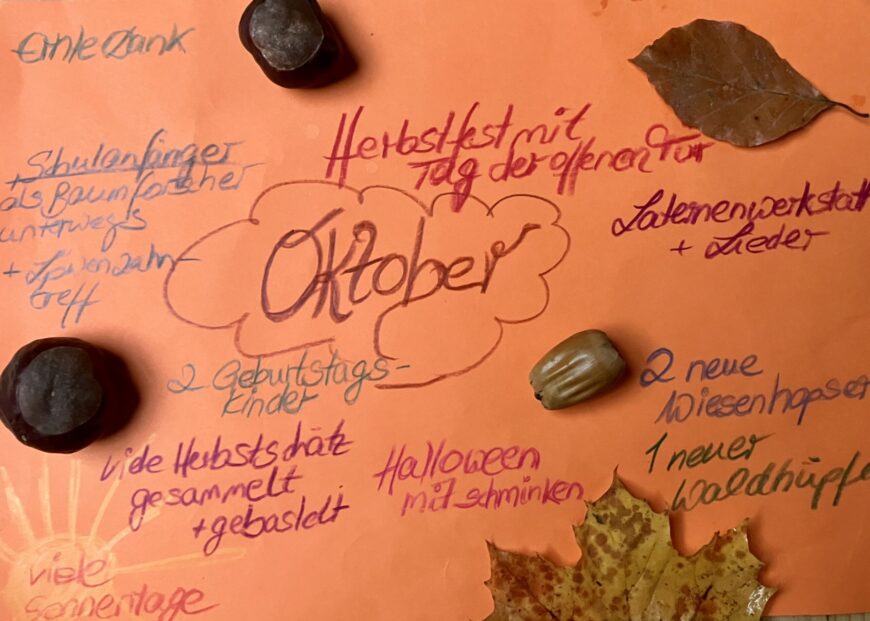 Erntedank
Herbstfest mit
Tag der offenen Tür
+ Schulanfänger
als Baumforscher
unterwegs
+ Löwenzahn-
treff
Laternenwerkstatt
+ Lieder
Oktober
2 Geburtstags-
kinder
2 neue
Wiesenhopser
1 neuer
Waldhüpfe
viele Herbstschätz
gesammelt
+ gebastelt
Halloween
mit schminken
viele
Sonnentage